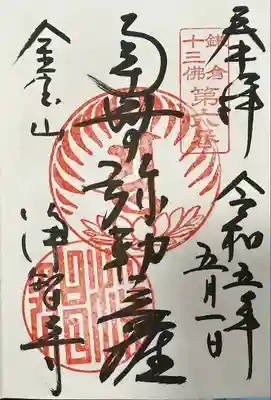 奉拝
令和五年
五月一日
鎌倉
十三佛
第六番
弥勒菩薩
金宝山
浄智寺